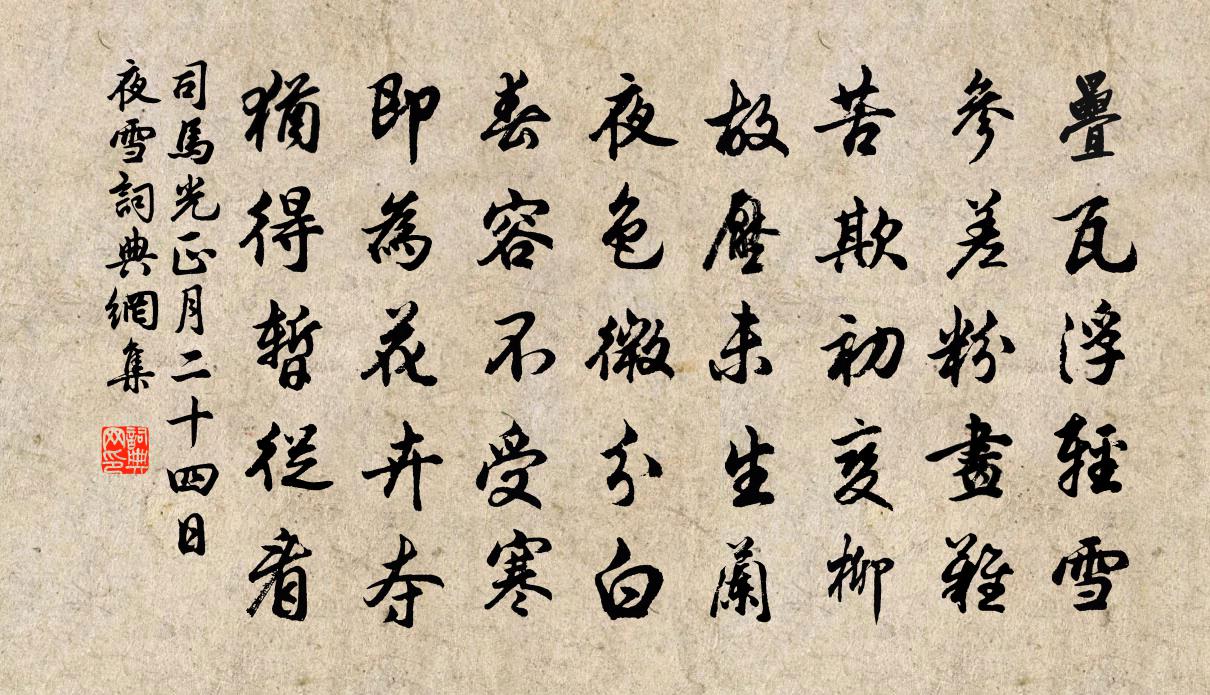 疊瓦浮輕雪
參差粉畫難
苦欺初變柳
故壓未生蘭
夜色微分白
春容不受寒
即為花卉夺
猶得暫從看
司馬光正月二十四日
夜雪詞典網集
詞典網印